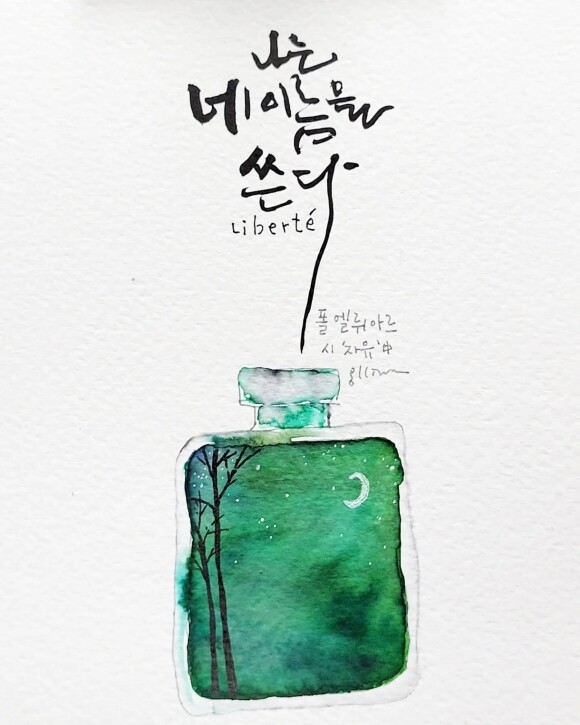 나는
네 이름을
쓴다
Liberté
폴 엘뤼아르
시 '자유' 中